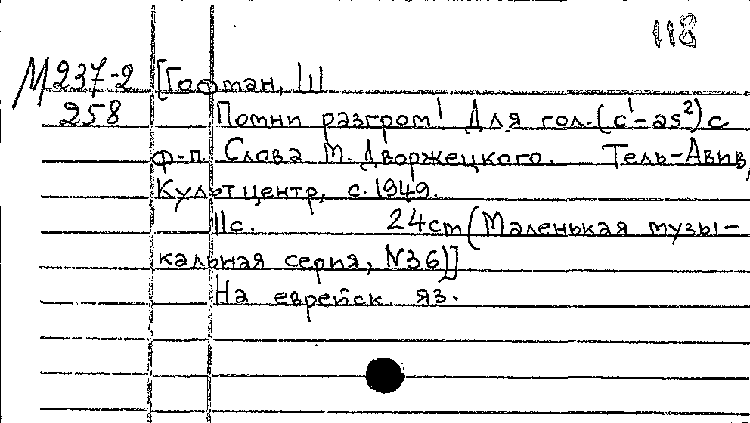 118
М237-2 [Гофман, Ш
258 Помни разгром! Для гол. (c¹-as²) с
ф-п. Слова М. Дворжецкого. Тель-Авив,
Культцентр, с. 1949.
11с. 24cm (Маленькая музы-
кальная серия, N36)]
На еврейск яз.